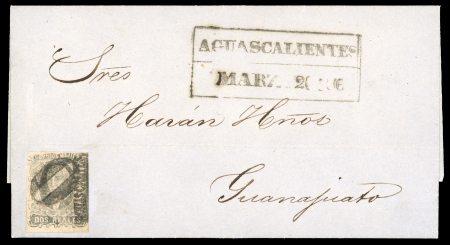 AGUASCALIENTES
MARZ. 20
Sres
Harán Hños
Guanajuato
DOS REALES